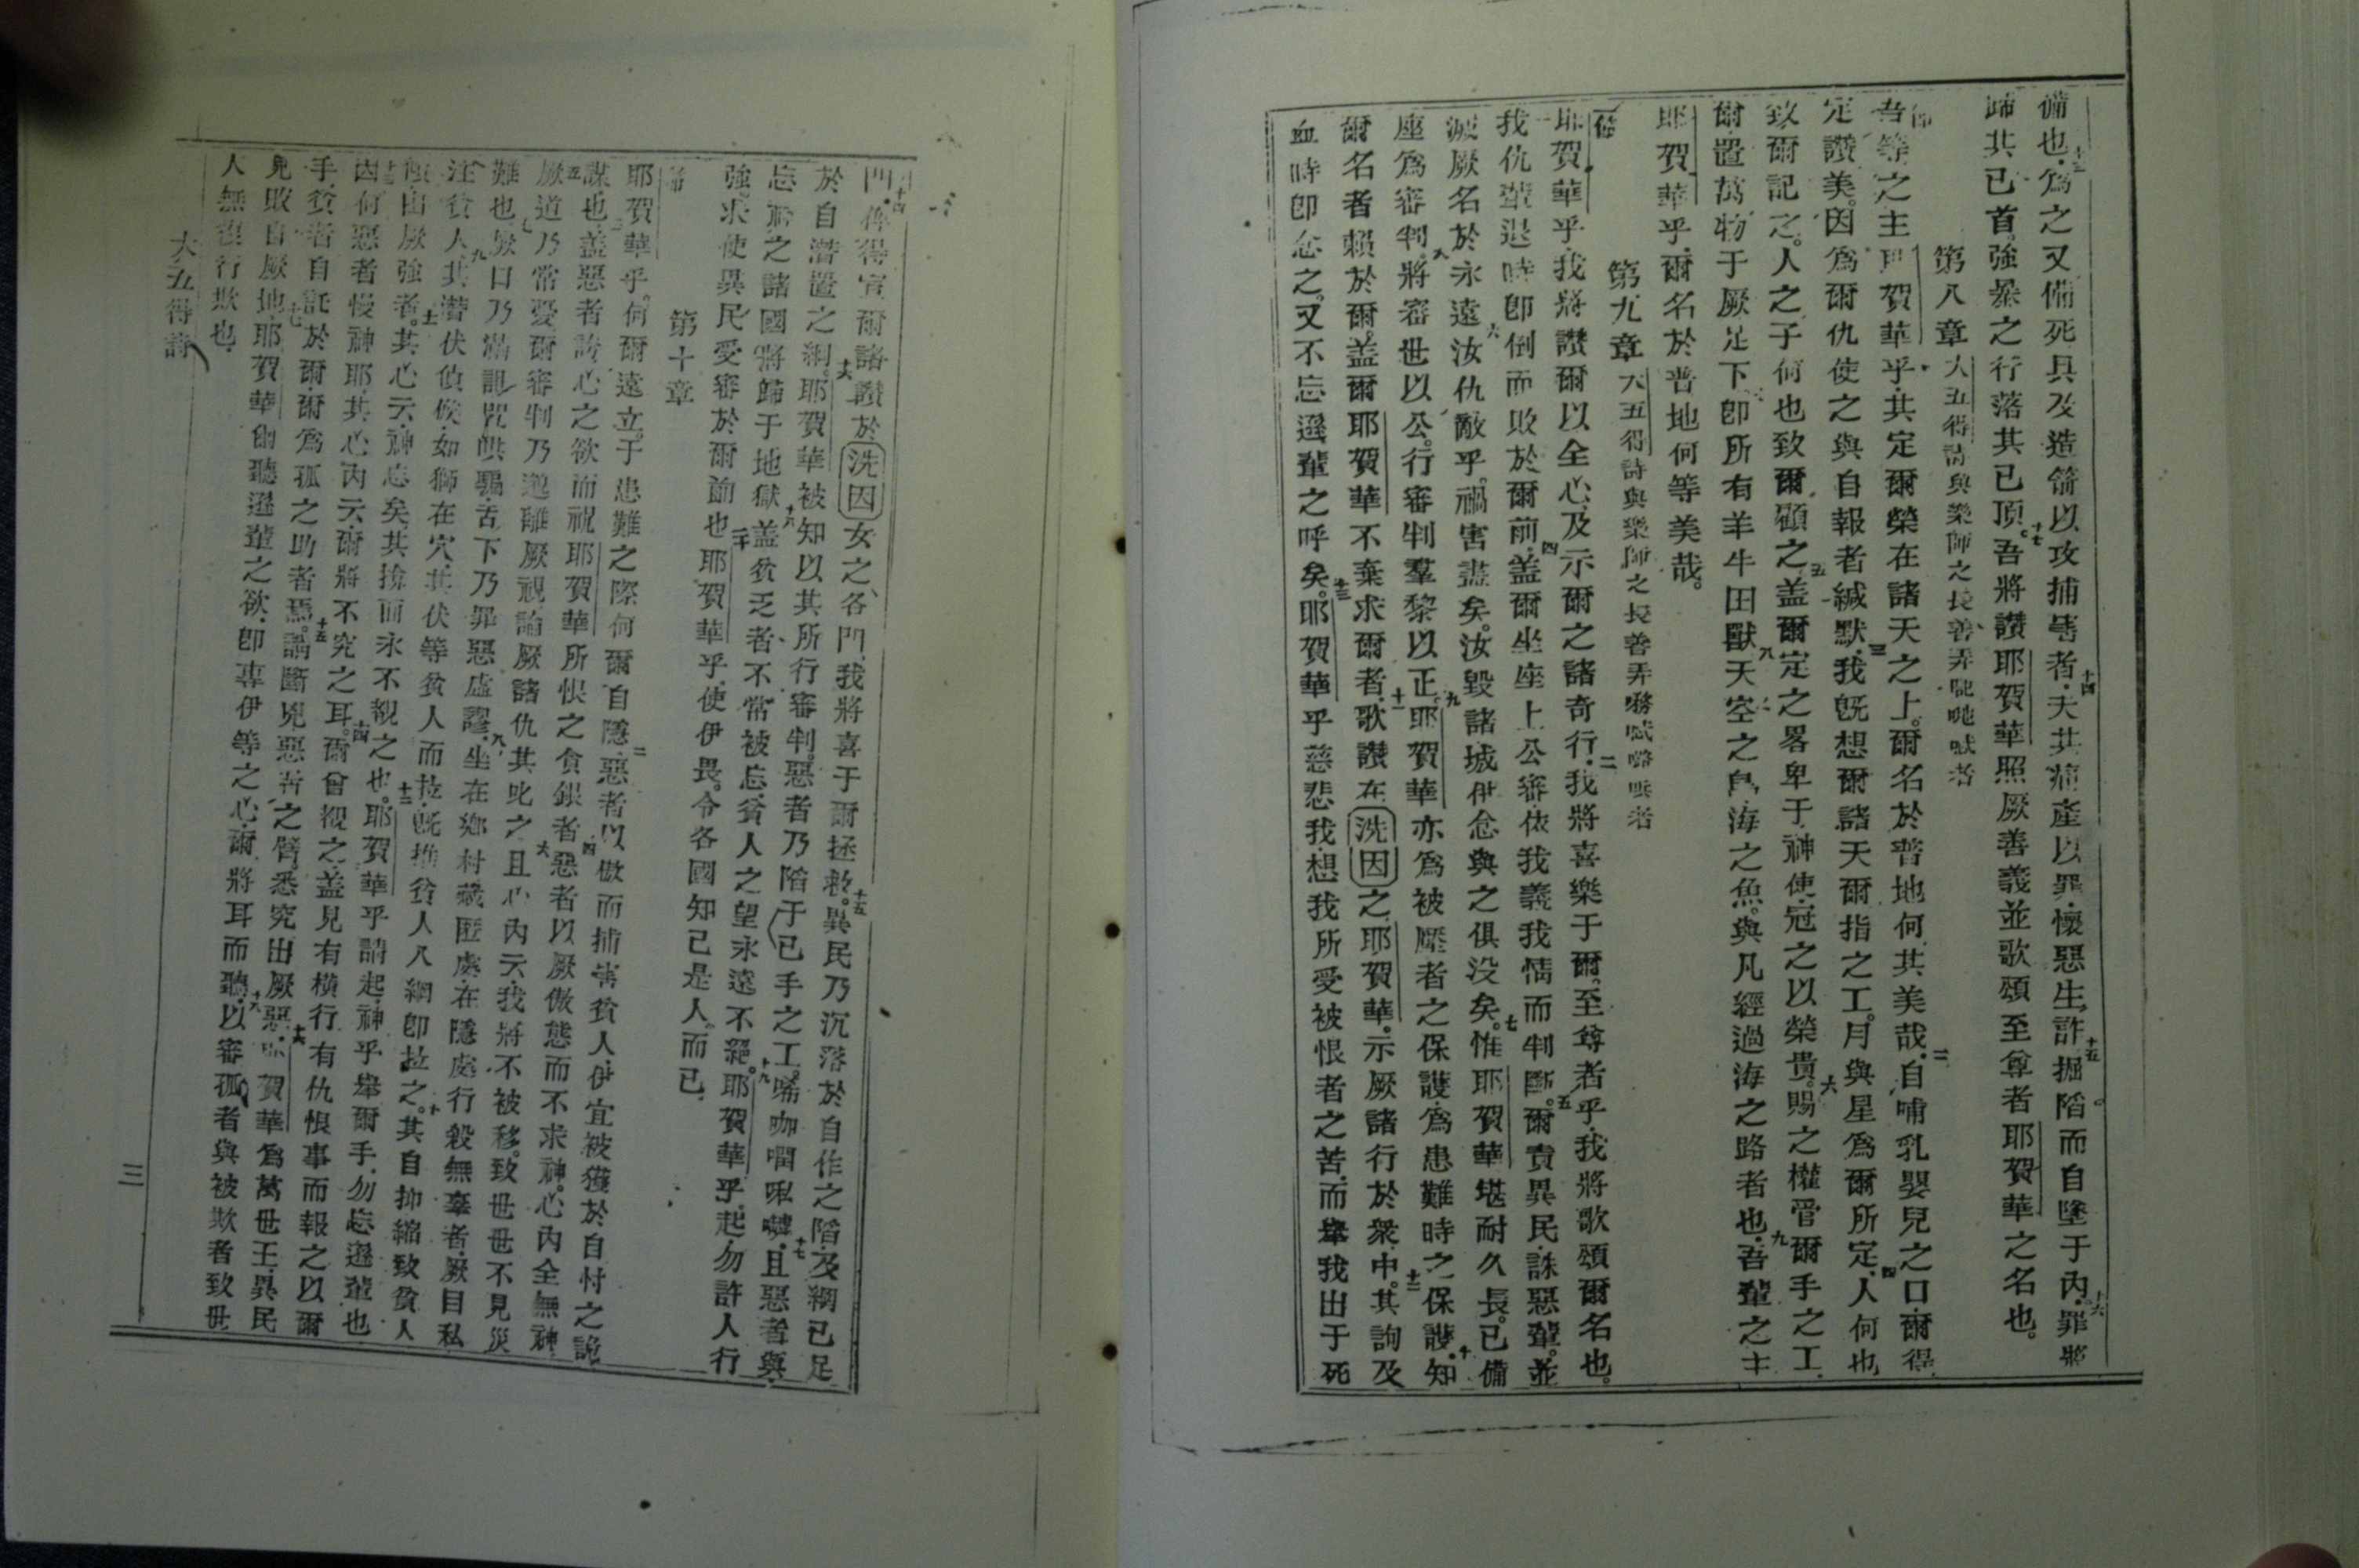 備也。十三為之又備死具及造箭以攻捕害者。十四夫其痛產以罪懷惡生詐。十五掘陷而自墜于內。十六罪將
歸其己首。強暴之行落其己頂。十七吾將讚耶賀華照厥善義並歌頌至尊者耶賀華之名也。
第八章 大五得詩與樂師之長善弄
吾等之主耶賀華乎。其定爾榮在諸天之上。爾名於普地何其美哉。二自哺乳嬰兒之口爾得
定讚美。因為爾仇使之與自報者緘默。三我既想爾諸天爾指之工。月與星為爾所定。四人何也
致爾記之。人之子何也致爾顧之。五蓋爾定之畧卑于神使。冠之以榮貴。六賜之權管爾手之工
爾置萬物于厥足下。七即所有羊牛田獸。八天空之鳥海之魚。與凡經過海之路者也。九吾輩之主
耶賀華乎。爾名於普地何等美哉。
第九章 大五得詩與樂師之長善弄
耶賀華乎。我將讚爾以全心。及示爾之諸奇行。二我將喜樂于爾。至尊者乎。我將歌頌爾名也。
我仇輩退時即倒而敗於爾前。四蓋爾坐座上公審。依我義我情而判斷。五爾責異民。誅惡輩。並
滅厥名於永遠。六汝仇敵乎。禍害盡矣。汝毀諸城伊念與之俱沒矣。七惟耶賀華堪耐久長。已備
座為審判。八將審世以公。行審判羣黎以正。九耶賀華亦為被壓者之保護。為患難時之保護。十知
爾名者賴於爾。蓋爾耶賀華不棄求爾者。十一歌讚在洗因之耶賀華。示厥諸行於衆中。十二其詢及
血時即念之。又不忘遜輩之呼矣。十三耶賀華乎慈悲我。想我所受被恨者之苦。而舉我出于死
門。十四俾得宣爾諸讚於洗因女之各門。我將喜于爾拯救。十五異民乃沉落於自作之陷。及網己足
於自潛置之網。十六耶賀華被知以其所行審判。惡者乃陷于己手之工。唏咖㗴㖿嚧。十七且惡者與
忘神之諸國將歸于地獄。十八蓋貧乏者不常被忘。貧人之望永遠不絕。十九耶賀華乎。起。勿許人行
強。求使異民受審於爾前也。二十耶賀華乎。使伊畏。令各國知己是人而已。
第十章
耶賀華乎。何爾遠立。于患難之際何爾自隱。二惡者以傲而捕害貧人。伊宜被獲於自忖之詭
謀也。三蓋惡者誇心之欲而祝耶賀華所恨之貪銀者。四惡者以厥傲態而不求神。心內全無神。
五厥道乃常憂。爾審判乃迥離厥視。論厥諸仇其叱之。六且心內云。我將不被移。致世世不見災
難也。七厥口乃滿詛咒哄騙。舌下乃罪惡虛謬。八坐在鄉村藏匿處。在隱處行殺無辜者。厥目私
注貧人。九其潛伏偵候。如獅在穴。其伏等貧人而拉。既推貧人入網即拉之。十其自抑縮致貧人
傾由厥強者。十一其心云。神忘矣。其掩面永不觀之也。十二耶賀華乎請起。神乎舉爾手。勿忘遜輩也
十三因何惡者慢神耶。其心內云。爾將不究之耳。十四爾曾視之。蓋見有橫行有仇恨事而報之以爾
手。貧者自託於爾。爾為孤之助者焉。十五請斷兇惡者之臂悉究出厥惡。十六耶賀華為萬世王。異民
見敗自厥地。十七耶賀華爾聽遜輩之欲。即專伊等之心。爾將耳而聽。十八以審孤者與被欺者致世
人無復行欺也。
大五得詩
三